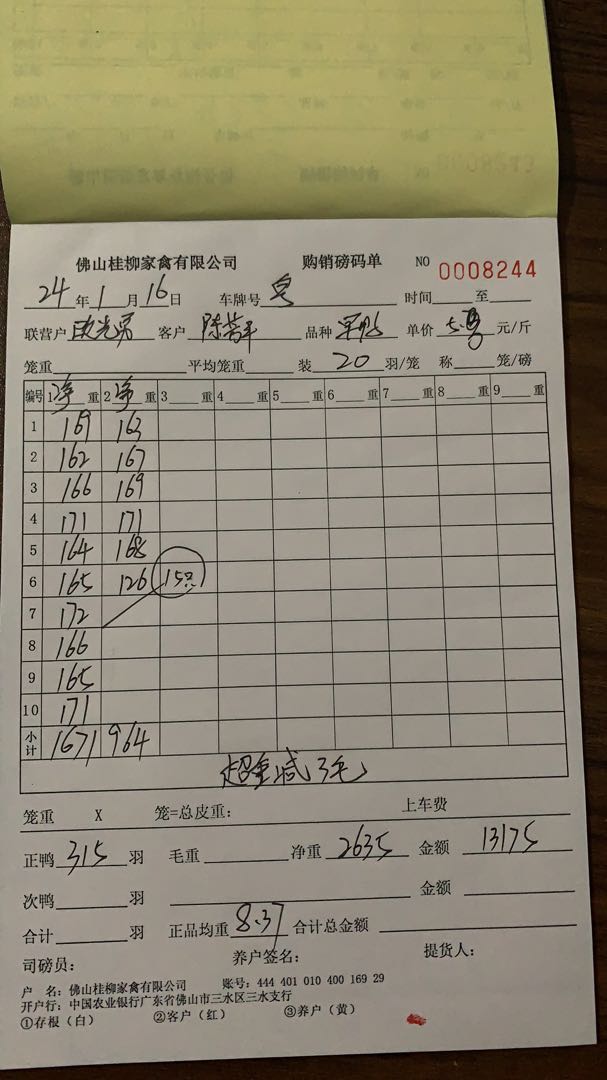 0008243
佛山桂柳家禽有限公司 购销磅码单 NO 0008244
24年1月16日 车牌号 时间 至
联营户 客户 品种 单价 元/斤
笼重 平均笼重 装 20 羽/笼 称 笼/磅
编号 1 净 重 2 净 重 3 重 4 重 5 重 6 重 7 重 8 重 9 重
1 169 163
2 162 167
3 166 169
4 171 171
5 164 168
6 165 126 15只
7 172
8 166
9 165
10 171
小计 1671 964
超重减3毛
笼重 X 笼=总皮重: 上车费
正鸭 315 羽 毛重 净重 2635 金额 13175
次鸭 羽 金额
合计 羽 正品均重 8.37 合计总金额
司磅员: 养户签名: 提货人:
户 名:佛山桂柳家禽有限公司 账号:444 401 010 400 169 29
开户行:中国农业银行广东省佛山市三水区三水支行
①存根(白) ②客户(红) ③养户(黄)